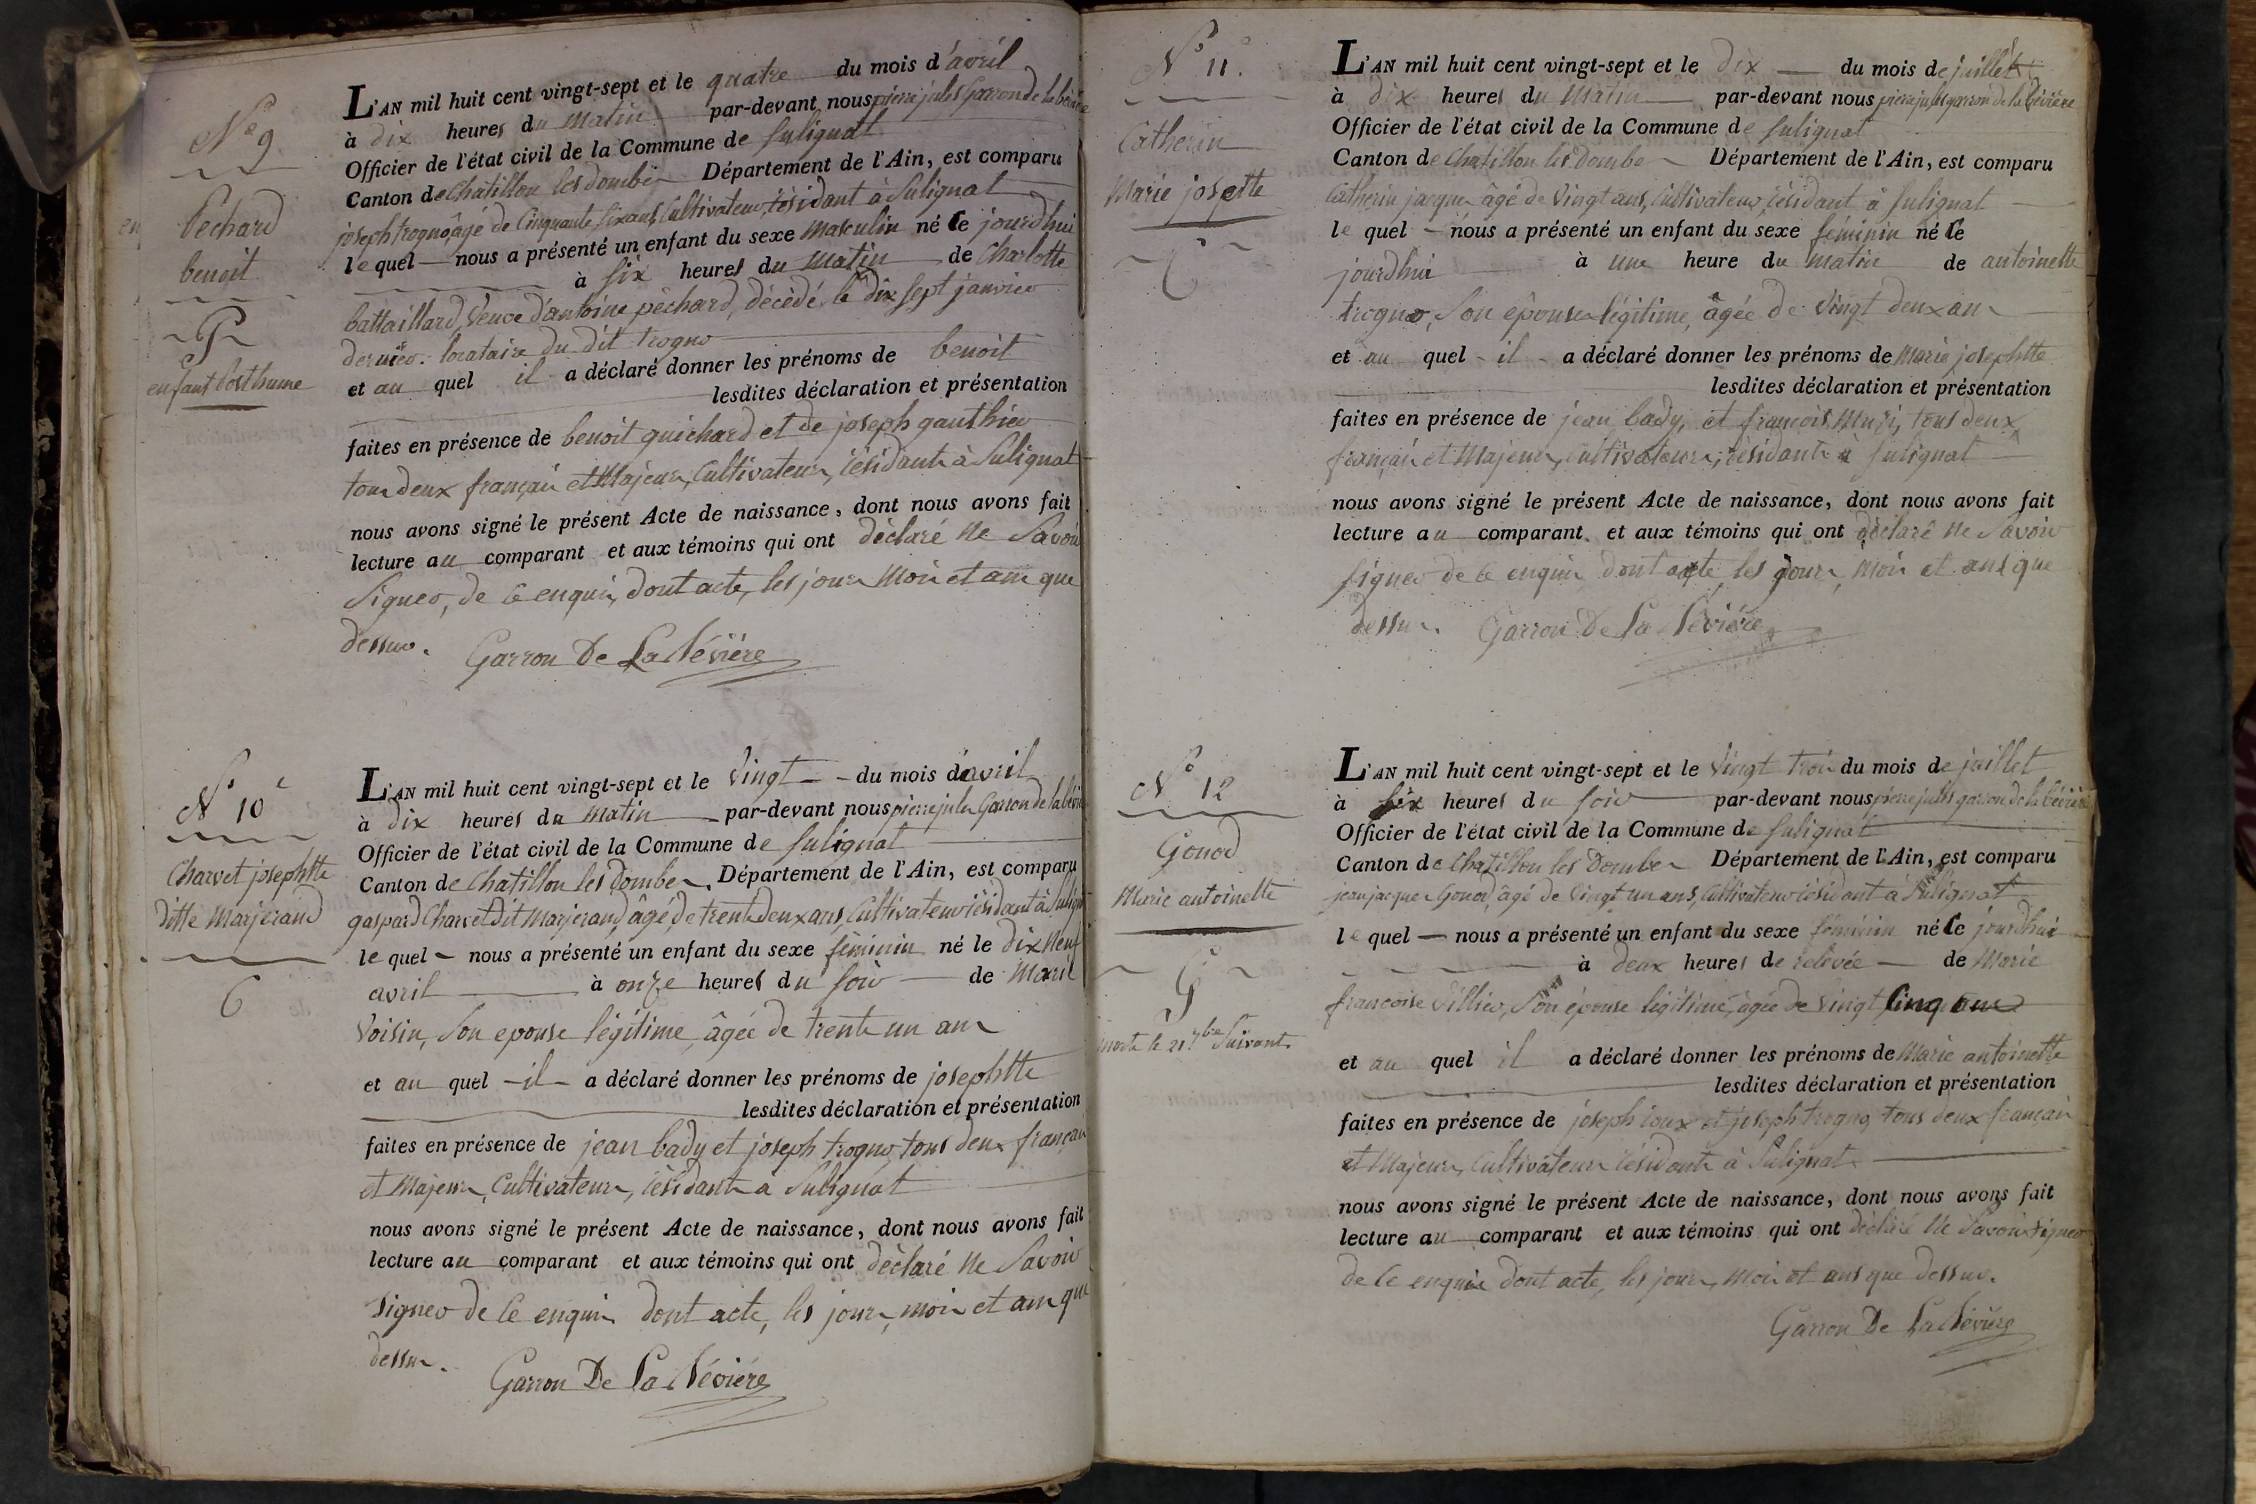 N° 9
Pechard
benoit
enfant Posthume
L'AN mil huit cent vingt-sept et le quatre du mois d'avril
à dix heures du matin par-devant nous pierre jules Garron de la bévière
Officier de l'état civil de la Commune de Sulignat
Canton de Chatillon les dombes Département de l'Ain, est comparu
joseph trogno, âgé de Cinquante six ans, Cultivateur, résidant à Sulignat
le quel nous a présenté un enfant du sexe masculin né le jourdhui
à six heures du matin de Charlotte
battaillard, veuve d'antoine péchard, décédé le dix sept janvier
dernier. locataire du dit trogno
et au quel il a déclaré donner les prénoms de benoit
lesdites déclaration et présentation
faites en présence de benoit guichard et de joseph gauthier
tous deux français et Majeurs, Cultivateurs, résidants à Sulignat
nous avons signé le présent Acte de naissance, dont nous avons fait
lecture au comparant et aux témoins qui ont déclaré ne Savoir
Signer, de ce enquis, dont acte, les jours Mois et ans que
dessus. Garron De La Bévière
N° 10e
Charvet josephtte
ditte Marjerand
L'AN mil huit cent vingt-sept et le Vingt du mois d'avril
à dix heures du matin par-devant nous pierre jules Garron de la bévière
Officier de l'état civil de la Commune de Sulignat
Canton de Chatillon les dombes. Département de l'Ain, est comparu
gaspard Charvet dit Marjerand, âgé de trente deux ans, Cultivateur résidant à Sulignat
le quel nous a présenté un enfant du sexe féminin né le dix Neuf
avril à onze heures du soir de Marie
Voisin, Son epouse légitime, âgée de trente un ans
et au quel il a déclaré donner les prénoms de josephtte
lesdites déclaration et présentation
faites en présence de jean bady et joseph trogno, tous deux français
et Majeurs, Cultivateurs, résidants a Sulignat
nous avons signé le présent Acte de naissance, dont nous avons fait
lecture au comparant et aux témoins qui ont déclaré ne Savoir
Signer de ce enquis dont acte, les jours, mois et ans que
dessus. Garron De La Bévière
N° 11.
Catherin
Marie josephtte
L'AN mil huit cent vingt-sept et le dix du mois de juillet
à dix heures du Matin par-devant nous pierre jules garron de la bévière
Officier de l'état civil de la Commune de Sulignat
Canton de Chatillon les Dombes Département de l'Ain, est comparu
Catherin jacques âgé de Vingt ans, Cultivateur, résidant à Sulignat
le quel nous a présenté un enfant du sexe féminin né le
jourdhui à une heure du matin de antoinette
trogno, Son épouse légitime, âgée de Vingt deux ans
et au quel il a déclaré donner les prénoms de Marie josephtte
lesdites déclaration et présentation
faites en présence de jean bady, et françois Muzi, tous deux
français et Majeurs, cultivateurs, résidants à Sulignat
nous avons signé le présent Acte de naissance, dont nous avons fait
lecture au comparant. et aux témoins qui ont déclaré ne Savoir
signer de ce enquis, dont acte les jours, Mois et ans que
dessus. Garron De La Bévière
N° 12
Gonod
Marie antoinette
G
morte le 21 7bre Suivant.
L'AN mil huit cent vingt-sept et le Vingt trois du mois de juillet
à six heures du soir par-devant nous pierre jules garron de la bévière
Officier de l'état civil de la Commune de Sulignat
Canton de Chatillon les Dombes Département de l'Ain, est comparu
jean jacques Gonod, âgé de Vingt un ans, Cultivateur résidant à Sulignat
le quel nous a présenté un enfant du sexe féminin né le jourdhui
à deux heures de relevée de Marie
francoise Villier, Son épouse légitime, âgée de Vingt Cinq ans
et au quel il a déclaré donner les prénoms de Marie antoinette
lesdites déclaration et présentation
faites en présence de joseph ioux et joseph trogno, tous deux français
et Majeurs, Cultivateurs résidants à Sulignat
nous avons signé le présent Acte de naissance, dont nous avons fait
lecture au comparant et aux témoins qui ont déclaré ne Savoir signer
de Ce enquis dont acte, les jours, Mois et ans que dessus.
Garron De La Bévière